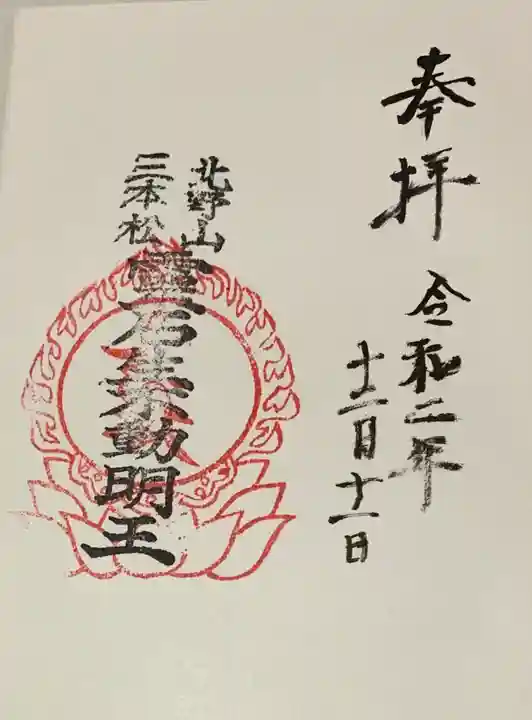 奉拝
令和二年
十二月十二日
北野山
三本松
霊石不動明王